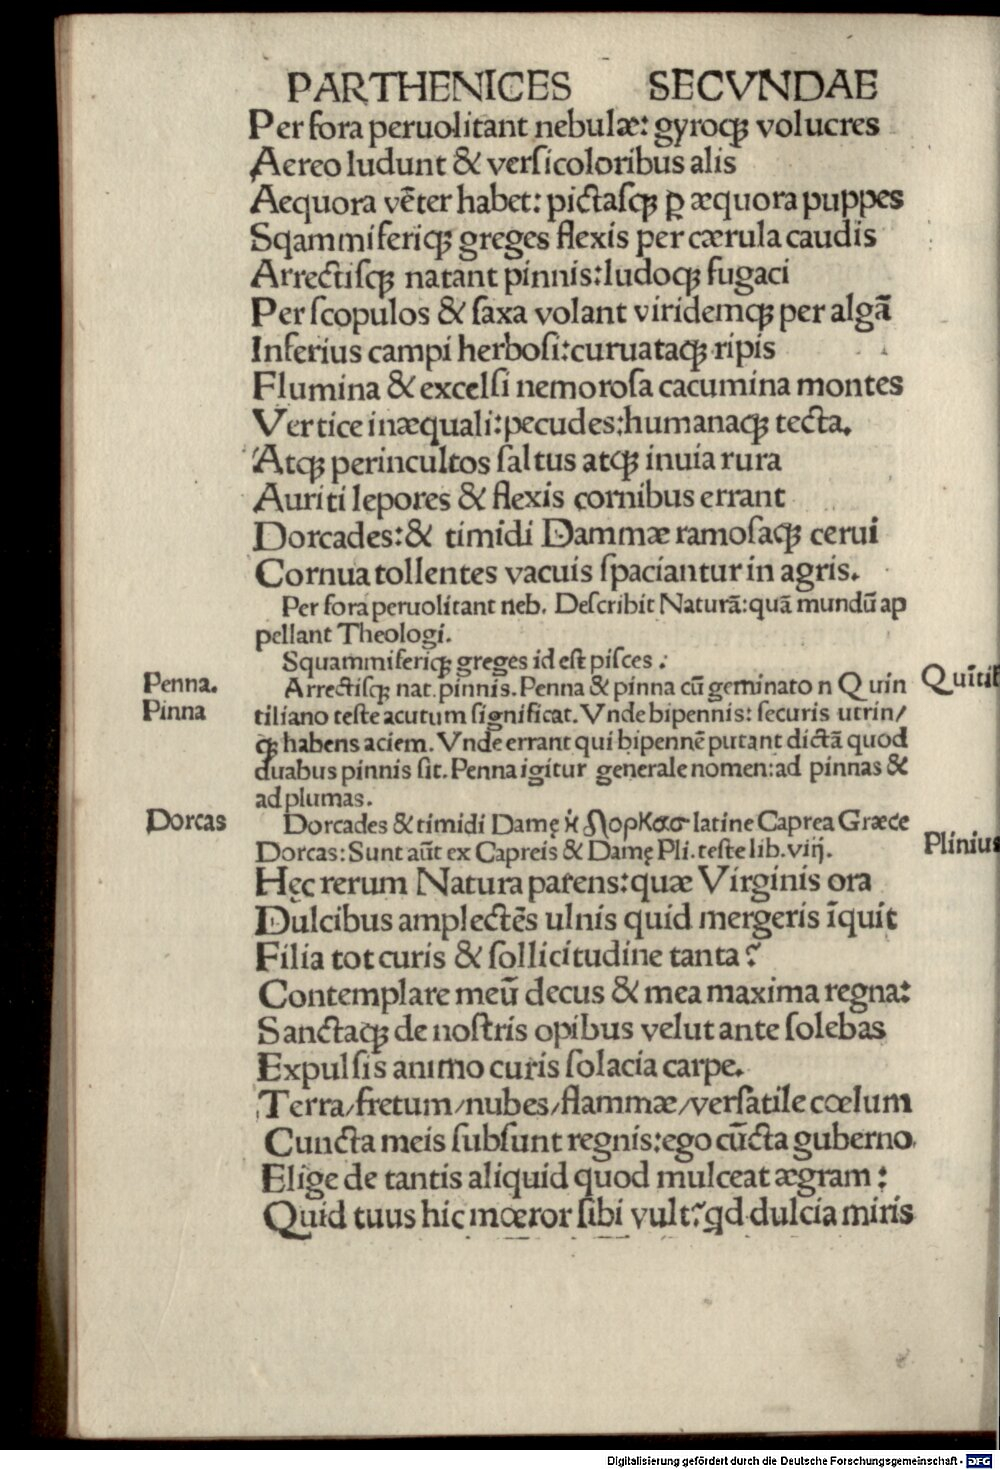 PARTHENICES SECVNDAE
Per fora peruolitant nebulæ: gyroqꝫ volucres
Aereo ludunt & versicoloribus alis
Aequora vēter habet: pictasqꝫ ꝑ æquora puppes
Sqammiferiqꝫ greges flexis per cærula caudis
Arrectisqꝫ natant pinnis: ludoqꝫ fugaci
Per scopulos & saxa volant viridemqꝫ per algā
Inferius campi herbosi: curuataqꝫ ripis
Flumina & excelsi nemorosa cacumina montes
Vertice inæquali: pecudes: humanaqꝫ tecta.
Atqꝫ perincultos saltus atqꝫ inuia rura
Auriti lepores & flexis cornibus errant
Dorcades: & timidi Dammæ ramosaqꝫ cerui
Cornua tollentes vacuis spaciantur in agris.
Per fora peruolitant neb. Describit Naturā: quā mundū ap
pellant Theologi.
Squammiferiqꝫ greges id est pisces.
Penna.
Arrectisqꝫ nat. pinnis. Penna & pinna cū geminato n Quin
Quītil
Pinna
tiliano teste acutum significat. Vnde bipennis: securis utrin/
qꝫ habens aciem. Vnde errant qui bipennē putant dictā quod
duabus pinnis sit. Penna igitur generale nomen: ad pinnas &
ad plumas.
Dorcas
Dorcades & timidi Damę latine Caprea Græce
Dorcas: Sunt aūt ex Capreis & Damę Pli. teste lib. viij.
Plinius
Hęc rerum Natura parens: quæ Virginis ora
Dulcibus amplectēs ulnis quid mergeris īquit
Filia tot curis & sollicitudine tanta?
Contemplare meū decus & mea maxima regna:
Sanctaqꝫ de nostris opibus velut ante solebas
Expulsis animo curis solacia carpe.
Terra/fretum/nubes/flammæ/versatile cœlum
Cuncta meis subsunt regnis: ego cūcta guberno.
Elige de tantis aliquid quod mulceat ægram:
Quid tuus hic mœror sibi vult? qd dulcia miris
Digitalisierung gefördert durch die Deutsche Forschungsgemeinschaft - DFG